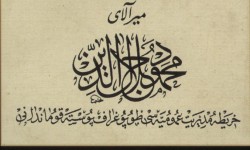 میر آلای
محمود جلال الدین
خریطه مدیریت عمومیه سی طوپوغراف پوسته قوماندانی